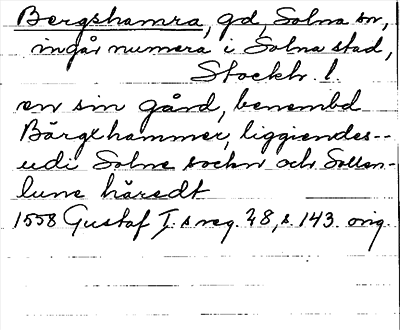 Bergshamra, gd, Solna sn,
ingår numera i Solna stad,
Stockh. l.
en sin gård, benembd
Bärgxhammer, liggiendes--
udi Solne sockn och Sollen-
lune häredt
1558 Gustaf I:s reg. 28, s. 143. orig.